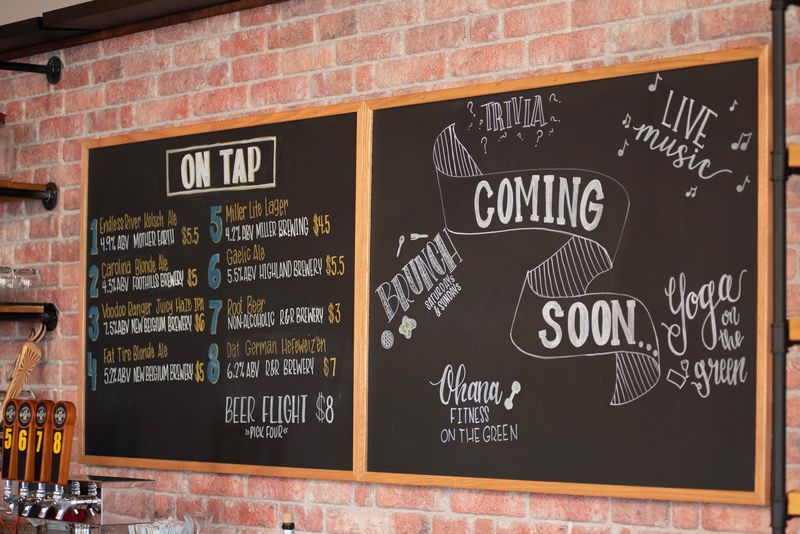 ON TAP
1 Endless River Kolsch Ale
4.9% ABV MOTHER EARTH $5.5
2 Carolina Blonde Ale
4.3% ABV FOOTHILLS BREWERY $5
3 Voodoo Ranger Juicy Haze IPA
7.5% ABV NEW BELGIUM BREWERY $6
4 Fat Tire Blonde Ale
5.2% ABV NEW BELGIUM BREWERY $5
5 Miller Lite Lager
4.2% ABV MILLER BREWING $4.5
6 Gaelic Ale
5.5% ABV HIGHLAND BREWERY $5.5
7 Root Beer
NON-ALCOHOLIC R&R BREWERY $3
8 Dat German Hefeweizen
6.2% ABV R&R BREWERY $7
BEER FLIGHT $8
»PICK FOUR«
TRIVIA
? ? ? ? ?
COMING
SOON...
LIVE
music
BRUNCH
SATURDAYS
& SUNDAYS
Yoga
on
the
green
Ohana
FITNESS
ON THE GREEN
5 6 7 8